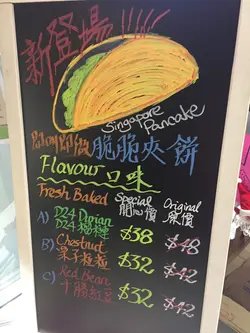 新登場
Singapore Pancake
即叫即做 脆脆夾餅
Flavour 口味
Fresh Baked Special Original
開心價 原價
A) D24 Durian $38 $48
D24榴槤
B) Chestnut $32 $42
栗子
C) Red Bean $32 $42
紅豆